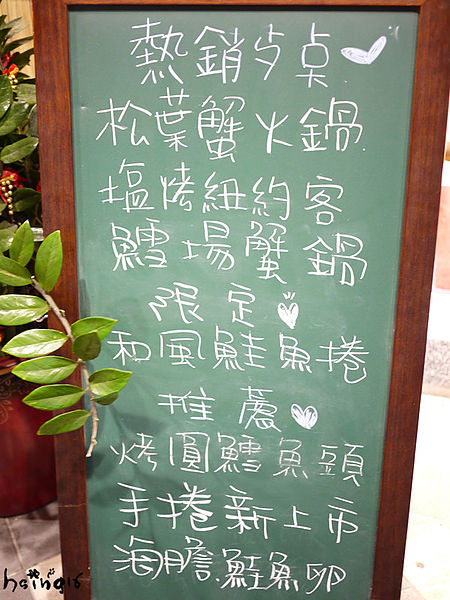 熱銷夕桌
松葉蟹火鍋
塩烤紐約客
鱈場蟹鍋
限定
和風鮭魚捲
推薦
烤圓鱈魚頭
手捲新上市
海膽.鮭魚卵
hsing16